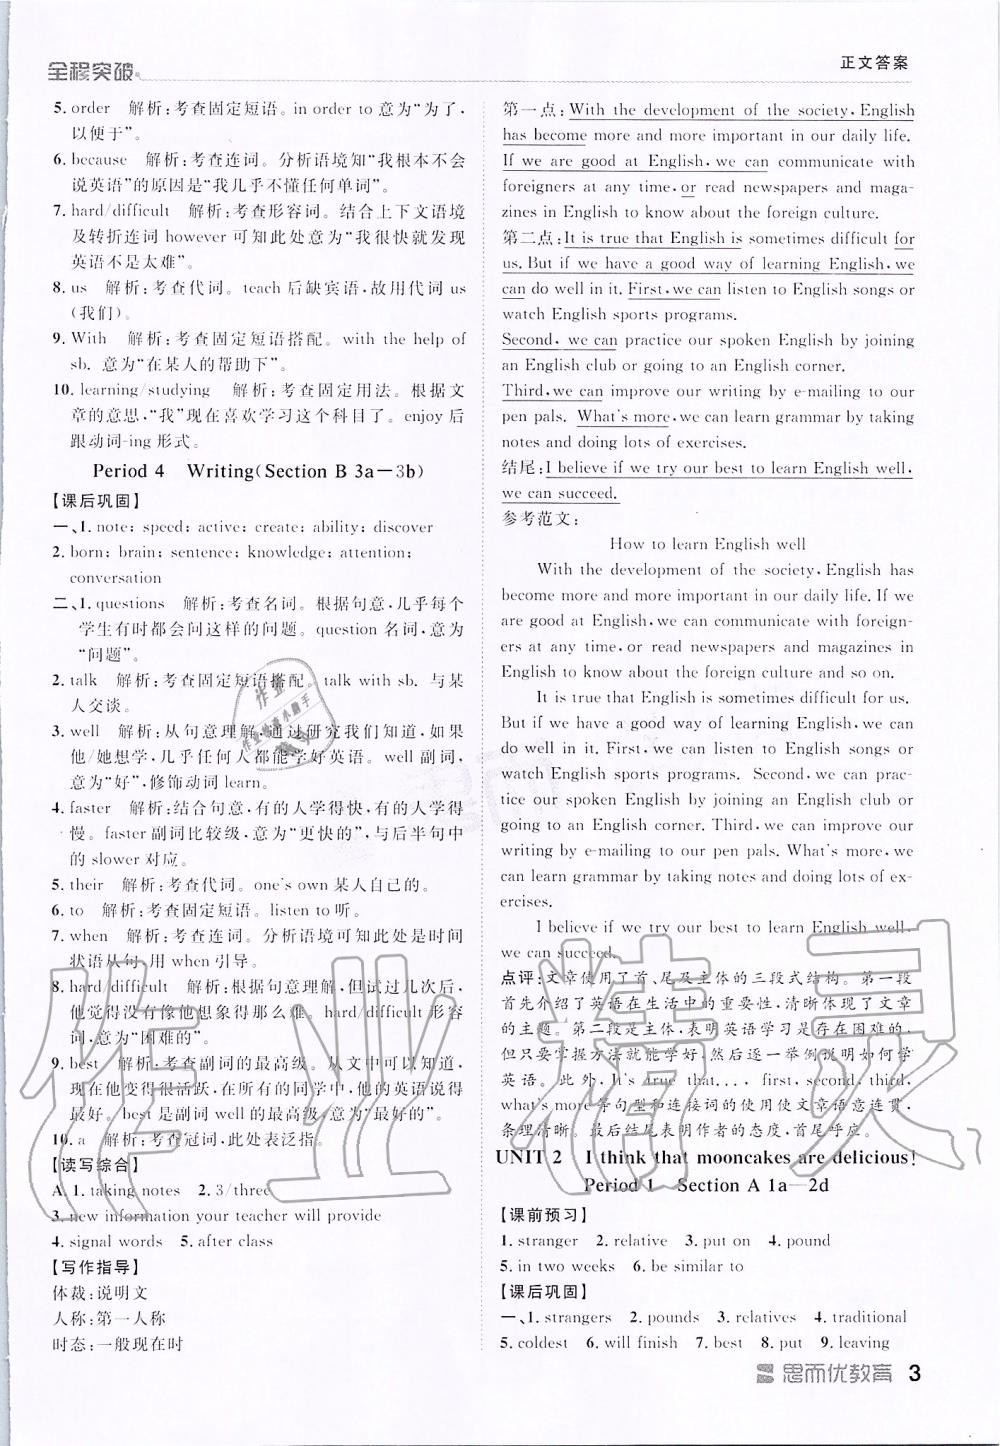 全程突破
正文答案
5. order　解析:考查固定短语。in order to 意为“为了,
以便于”。
6. because　解析:考查连词。分析语境知“我根本不会
说英语”的原因是“我几乎不懂任何单词”。
7. hard/difficult　解析:考查形容词。结合上下文语境
及转折连词 however 可知此处意为“我很快就发现
英语不是太难”。
8. us　解析:考查代词。teach 后缺宾语,故用代词 us
(我们)。
9. With　解析:考查固定短语搭配。with the help of
sb. 意为“在某人的帮助下”。
10. learning/studying　解析:考查固定用法。根据文
章的意思,“我”现在喜欢学习这个科目了。enjoy 后
跟动词-ing 形式。
Period 4　Writing(Section B 3a—3b)
【课后巩固】
一、1. note; speed; active; create; ability; discover
2. born; brain; sentence; knowledge; attention;
conversation
二、1. questions　解析:考查名词。根据句意,几乎每个
学生有时都会问这样的问题。question 名词,意为
“问题”。
2. talk　解析:考查固定短语搭配。talk with sb. 与某
人交谈。
3. well　解析:从句意理解,通过研究我们知道,如果
他/她想学,几乎任何人都能学好英语。well 副词,
意为“好”,修饰动词 learn。
4. faster　解析:结合句意,有的人学得快,有的人学得
慢。faster 副词比较级,意为“更快的”,与后半句中
的 slower 对应。
5. their　解析:考查代词。one's own 某人自己的。
6. to　解析:考查固定短语。listen to 听。
7. when　解析:考查连词。分析语境可知此处是时间
状语从句,用 when 引导。
8. hard/difficult　解析:根据句意理解,但试过几次后,
他觉得没有像他想象得那么难。hard/difficult 形容
词,意为“困难的”。
9. best　解析:考查副词的最高级。从文中可以知道,
现在他变得很活跃,在所有的同学中,他的英语说得
最好。best 是副词 well 的最高级,意为“最好的”。
10. a　解析:考查冠词,此处表泛指。
【读写综合】
A. 1. taking notes　2. 3/three
3. new information your teacher will provide
4. signal words　5. after class
【写作指导】
体裁:说明文
人称:第一人称
时态:一般现在时
第一点: With the development of the society, English
has become more and more important in our daily life.
If we are good at English, we can communicate with
foreigners at any time, or read newspapers and maga-
zines in English to know about the foreign culture.
第二点: It is true that English is sometimes difficult for
us. But if we have a good way of learning English, we
can do well in it. First, we can listen to English songs or
watch English sports programs.
Second, we can practice our spoken English by joining
an English club or going to an English corner.
Third, we can improve our writing by e-mailing to our
pen pals. What's more, we can learn grammar by taking
notes and doing lots of exercises.
结尾: I believe if we try our best to learn English well,
we can succeed.
参考范文:
How to learn English well
With the development of the society, English has
become more and more important in our daily life. If we
are good at English, we can communicate with foreign-
ers at any time, or read newspapers and magazines in
English to know about the foreign culture and so on.
It is true that English is sometimes difficult for us.
But if we have a good way of learning English, we can
do well in it. First, we can listen to English songs or
watch English sports programs. Second, we can prac-
tice our spoken English by joining an English club or
going to an English corner. Third, we can improve our
writing by e-mailing to our pen pals. What's more, we
can learn grammar by taking notes and doing lots of ex-
ercises.
I believe if we try our best to learn English well, we
can succeed.
点评:文章使用了首、尾及主体的三段式结构。第一段
首先介绍了英语在生活中的重要性,清晰体现了文章
的主题。第二段是主体,表明英语学习是存在困难的,
但只要掌握方法就能学好,然后逐一举例说明如何学
英语。此外,It's true that..., first, second, third,
what's more 等句型和连接词的使用使文章语意连贯,
条理清晰。最后结尾表明作者的态度,首尾呼应。
UNIT 2　I think that mooncakes are delicious!
Period 1　Section A 1a—2d
【课前预习】
1. stranger　2. relative　3. put on　4. pound
5. in two weeks　6. be similar to
【课后巩固】
一、1. strangers　2. pounds　3. relatives　4. traditional
5. coldest　6. will finish　7. best　8. put　9. leaving
思而优教育 3
作业精灵